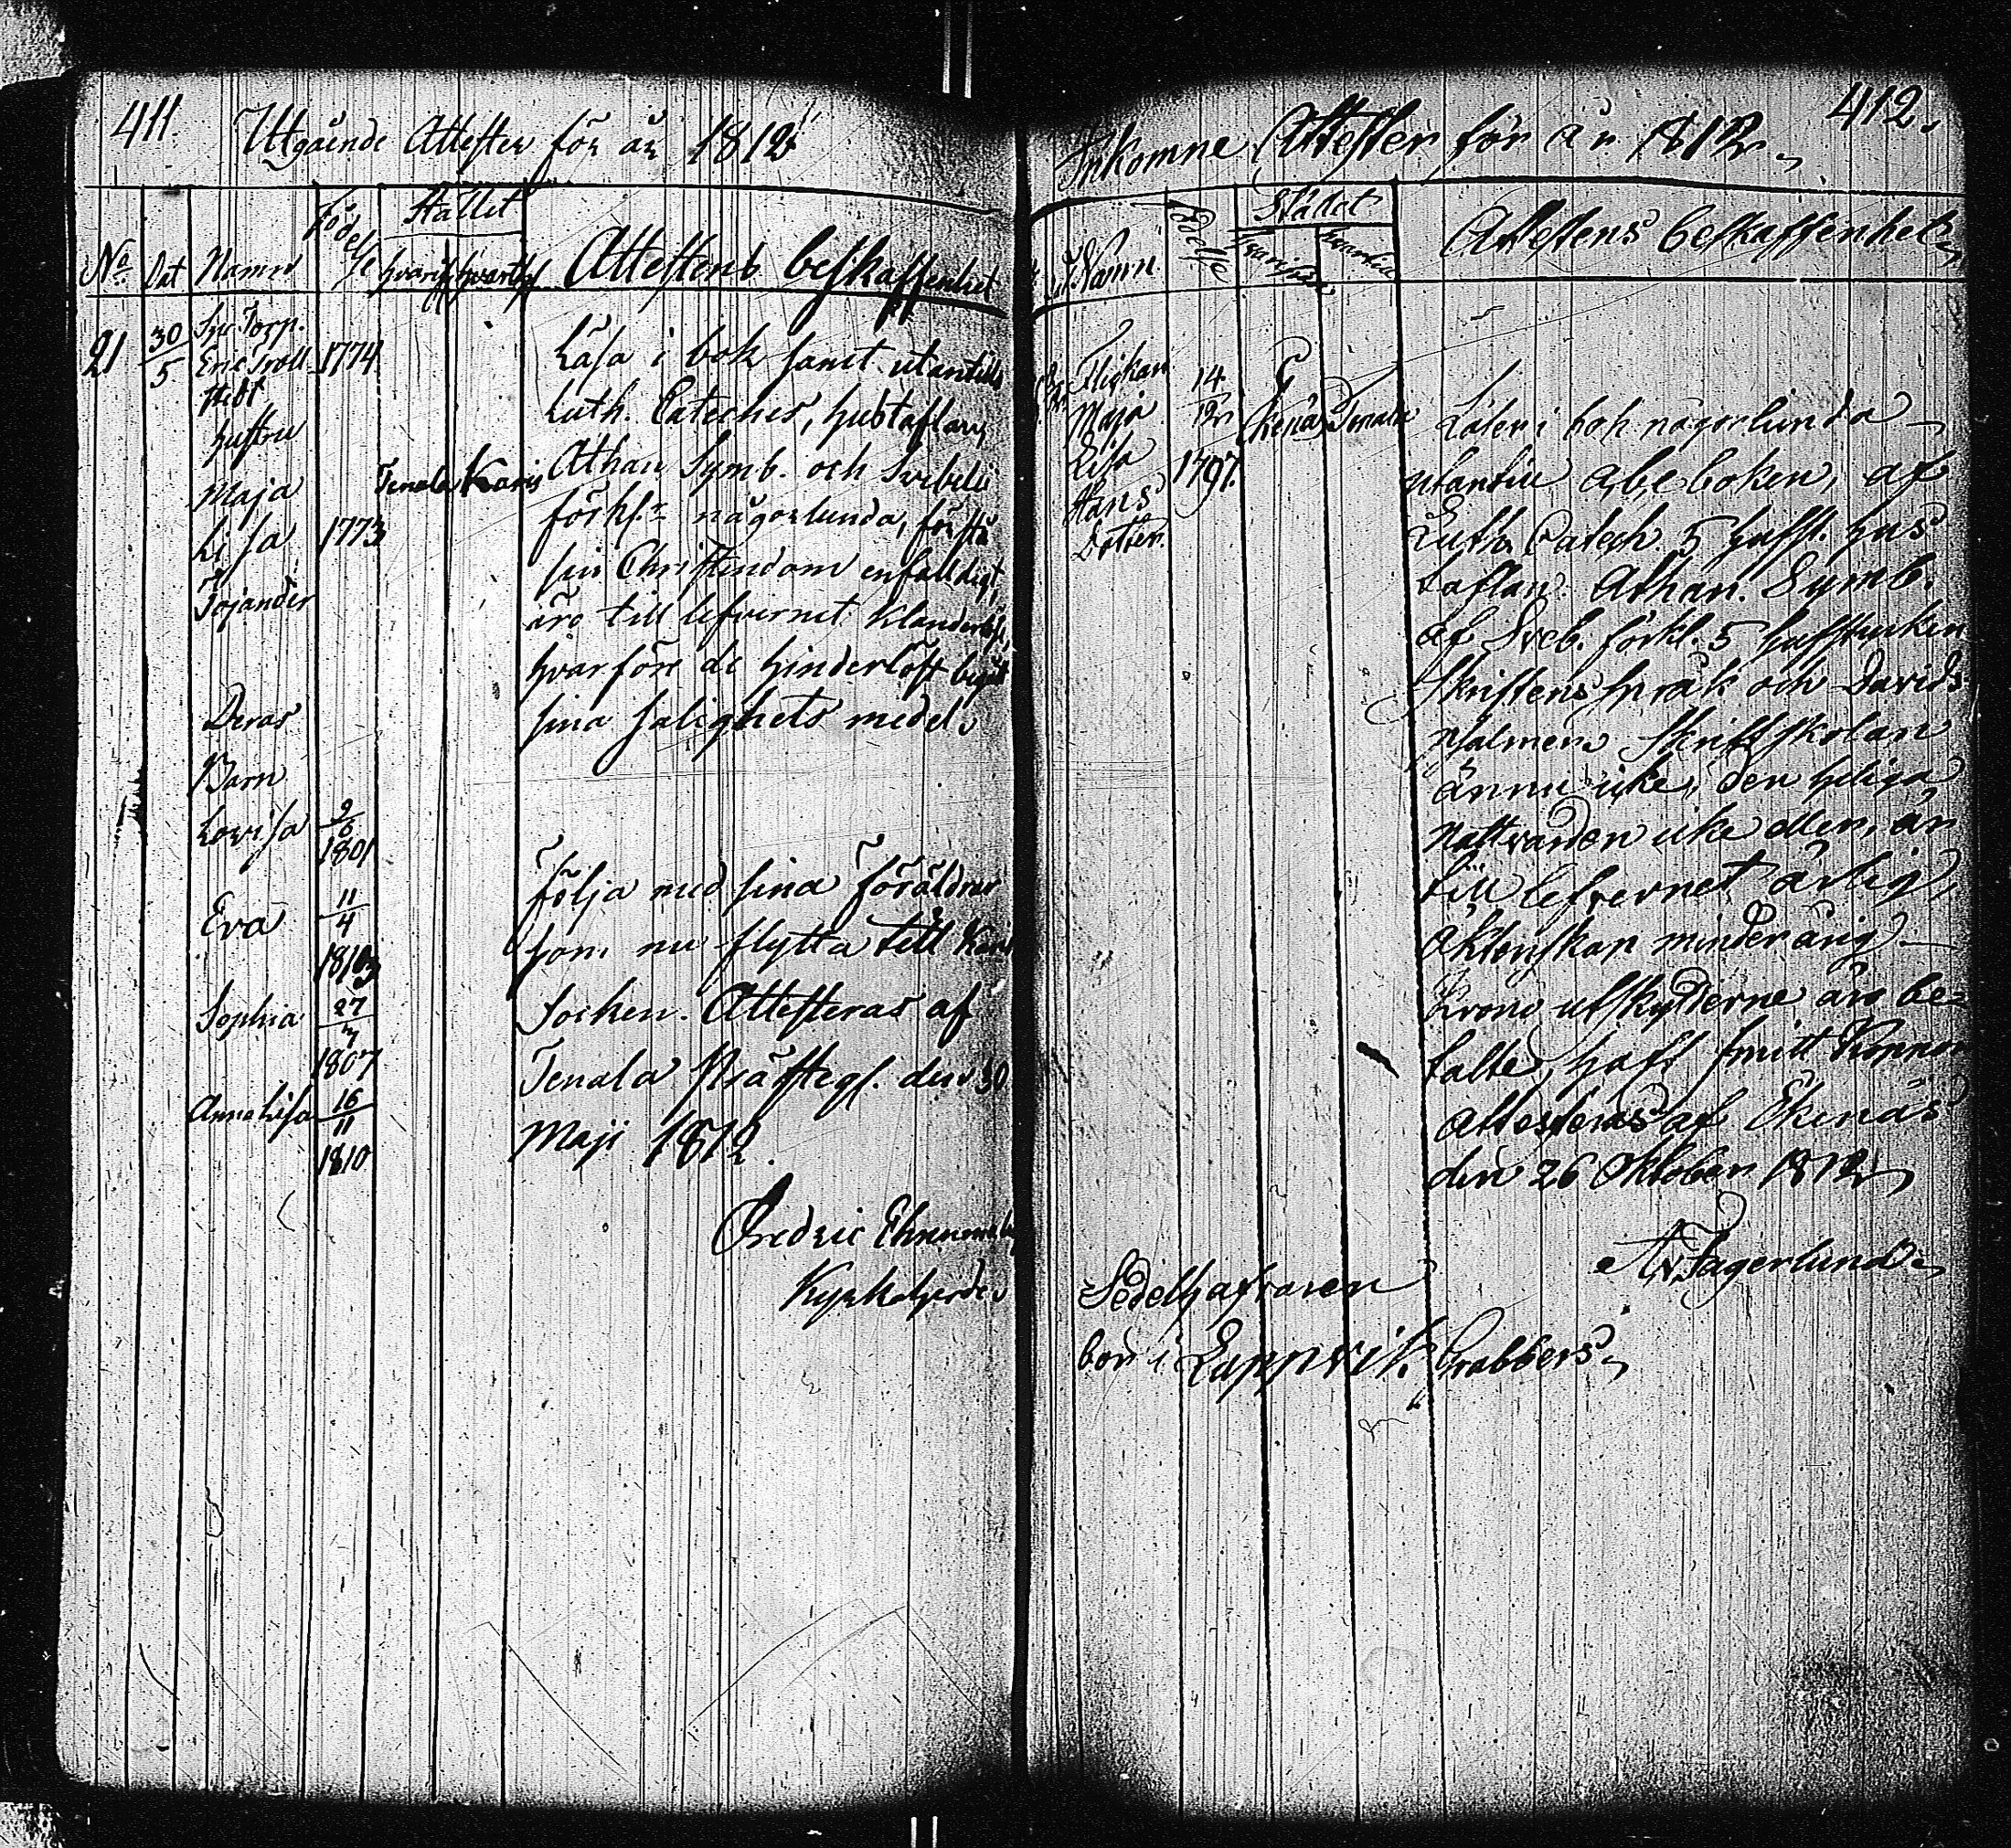 411.
Utgående Attester för år 1812
Stället
Födelse
No Dat Namn hvarifr hvarthe Attestens beskaffenhet
21 30/5 Torp.
Eric 1774
hustru
Maja
Lisa 1773
Tojander
Tenala Karis
Deras
Barn
Lovisa 9/8
1801
Eva 11/4
Sophia 27/7
1807
Anna Lisa 16/11
1810
Läsa i bok samt utantill
Luth. Cateches, hustaflan,
Athan. Symb. och Svebelii
förkl. någorlunda, förstå
sin Christendom enfalldigt,
äro till lefvernet klanderlöse,
hvarföre de hinderlöst begåt
sina salighets medel.
följa med sina föräldrar
som nu flytta till Karis
Socken. Attesteras af
Tenala Prästegl. den 30
Maji 1812.
Fredric
Kyrkoherde.
412.
Inkomne Attester för år 1812.
Stället
Namn födelse hvarifrån hvarthen Attestens beskaffenhet
Flickan 14/12
Maja
Lisa 1797.
Hans
Dotter.
Ekenäs Tenala
Läser i bok någorlunda
utantill abc boken, af
Luth. Catech. 5 hufst. hus
taflan. Athan. Symb.
af Sveb. förkl. 5 hufstycken
Skriftens språk och Davids
psalmer. Skriftskolan
ännu icke, den heliga
nattvarden icke eller, är
till lefvernet ärlig,
Äktenskap minderårig.
Krono utskylderne äro be-
talte, haft smitt Koppor
Attesteras af Ekenäs
den 26 Oktober 1812
Fagerlund
Sedelhafvaren
bor i Lappvik Grabbers.